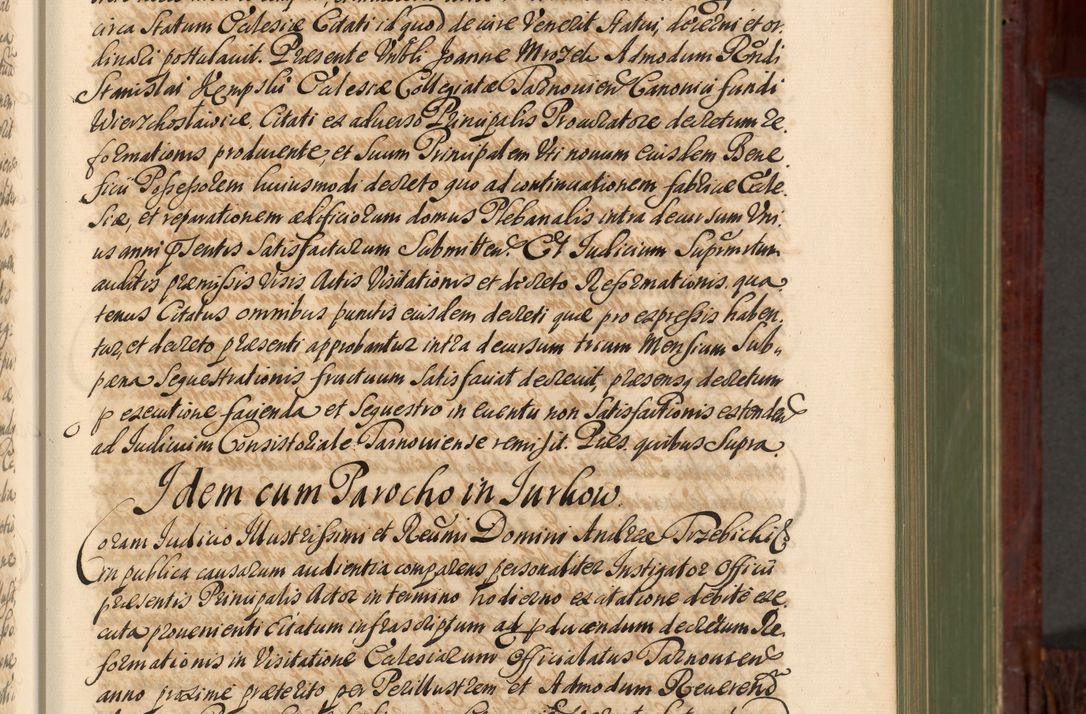 circa Statum Ecclesiæ Citati id quod de iure Venerit Statui, decerni et or
dinari postulavit. Præsente Nobli Joanne Mrozek Admodum Rndi
Stanislai Kempski Ecclesiæ Collegiatæ Tarnovien Canonici fundi
Wierzchosławice, Citati ex adverso Principalis Procuratore decretum re
formationis producente, et Suum Principalem Uti novum eiusdem Bene
ficii Possessorem huiusmodi decreto quo ad continuationem fabricæ Eccle
siæ, et reparationem ædificiorum domus Plebanalis intra decursum Uni
us anni pntis Satisfacturum Submitten. Et Iudicium Suprmitum
auditis præmissis visis Actis Visitationis et decreto Reformationis. qua
tenus Citatus omnibus punctis eiusdem decreti quæ pro expressis haben
tur, et decreto præsenti approbantur intra decursum trium Mensium Sub
pæna Sequestrationis fructuum Satisfaciat decrevit, præsensq decretum
p executione facienda et Sequestro in eventu non Satisfactionis extenden
ad Iudicium Consistoriale Tarnoviense remisit. Præs. quibus Supra.
Idem cum Parocho in Jurkow.
Coram Iudicio Illustrissimi et Reumi Domini Andreæ Trzebicki
in publica causarum audientia comparens personaliter Instigator Officii
præsentis Principalis Actor in termino hodierno ex citatione debite exe
cuta provenienti Citatum infrascriptum ad p ducendum decretum Re
formationis in Visitatione Ecclesiarum Officialatus Tarnovien
anno proxime præterito per Perillustrem et Admodum Reverend